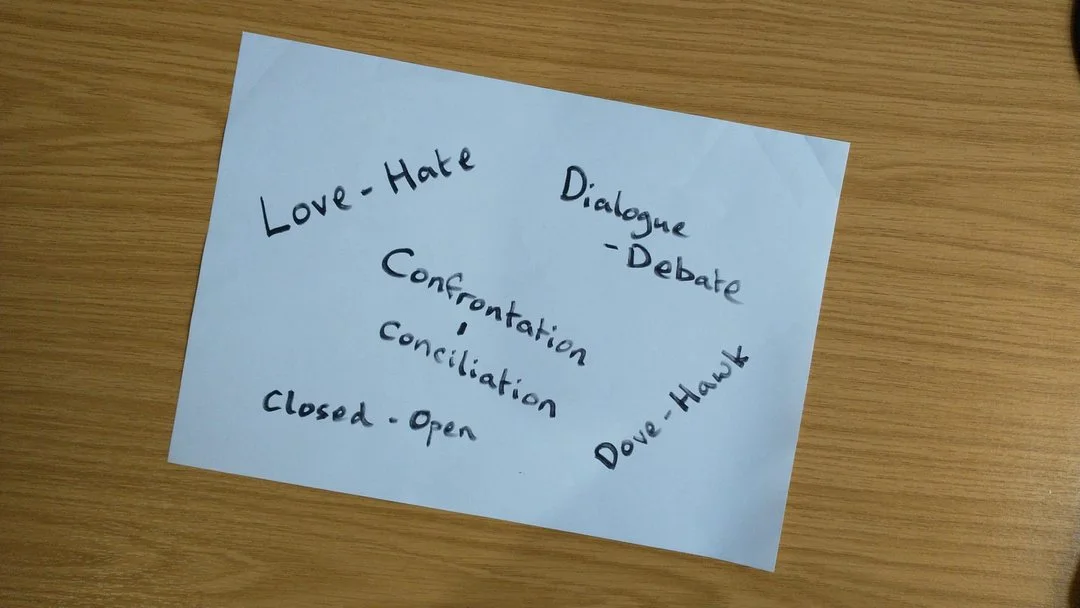 Love - Hate
Dialogue
- Debate
Confrontation
-
Conciliation
Closed - Open
Dove - Hawk